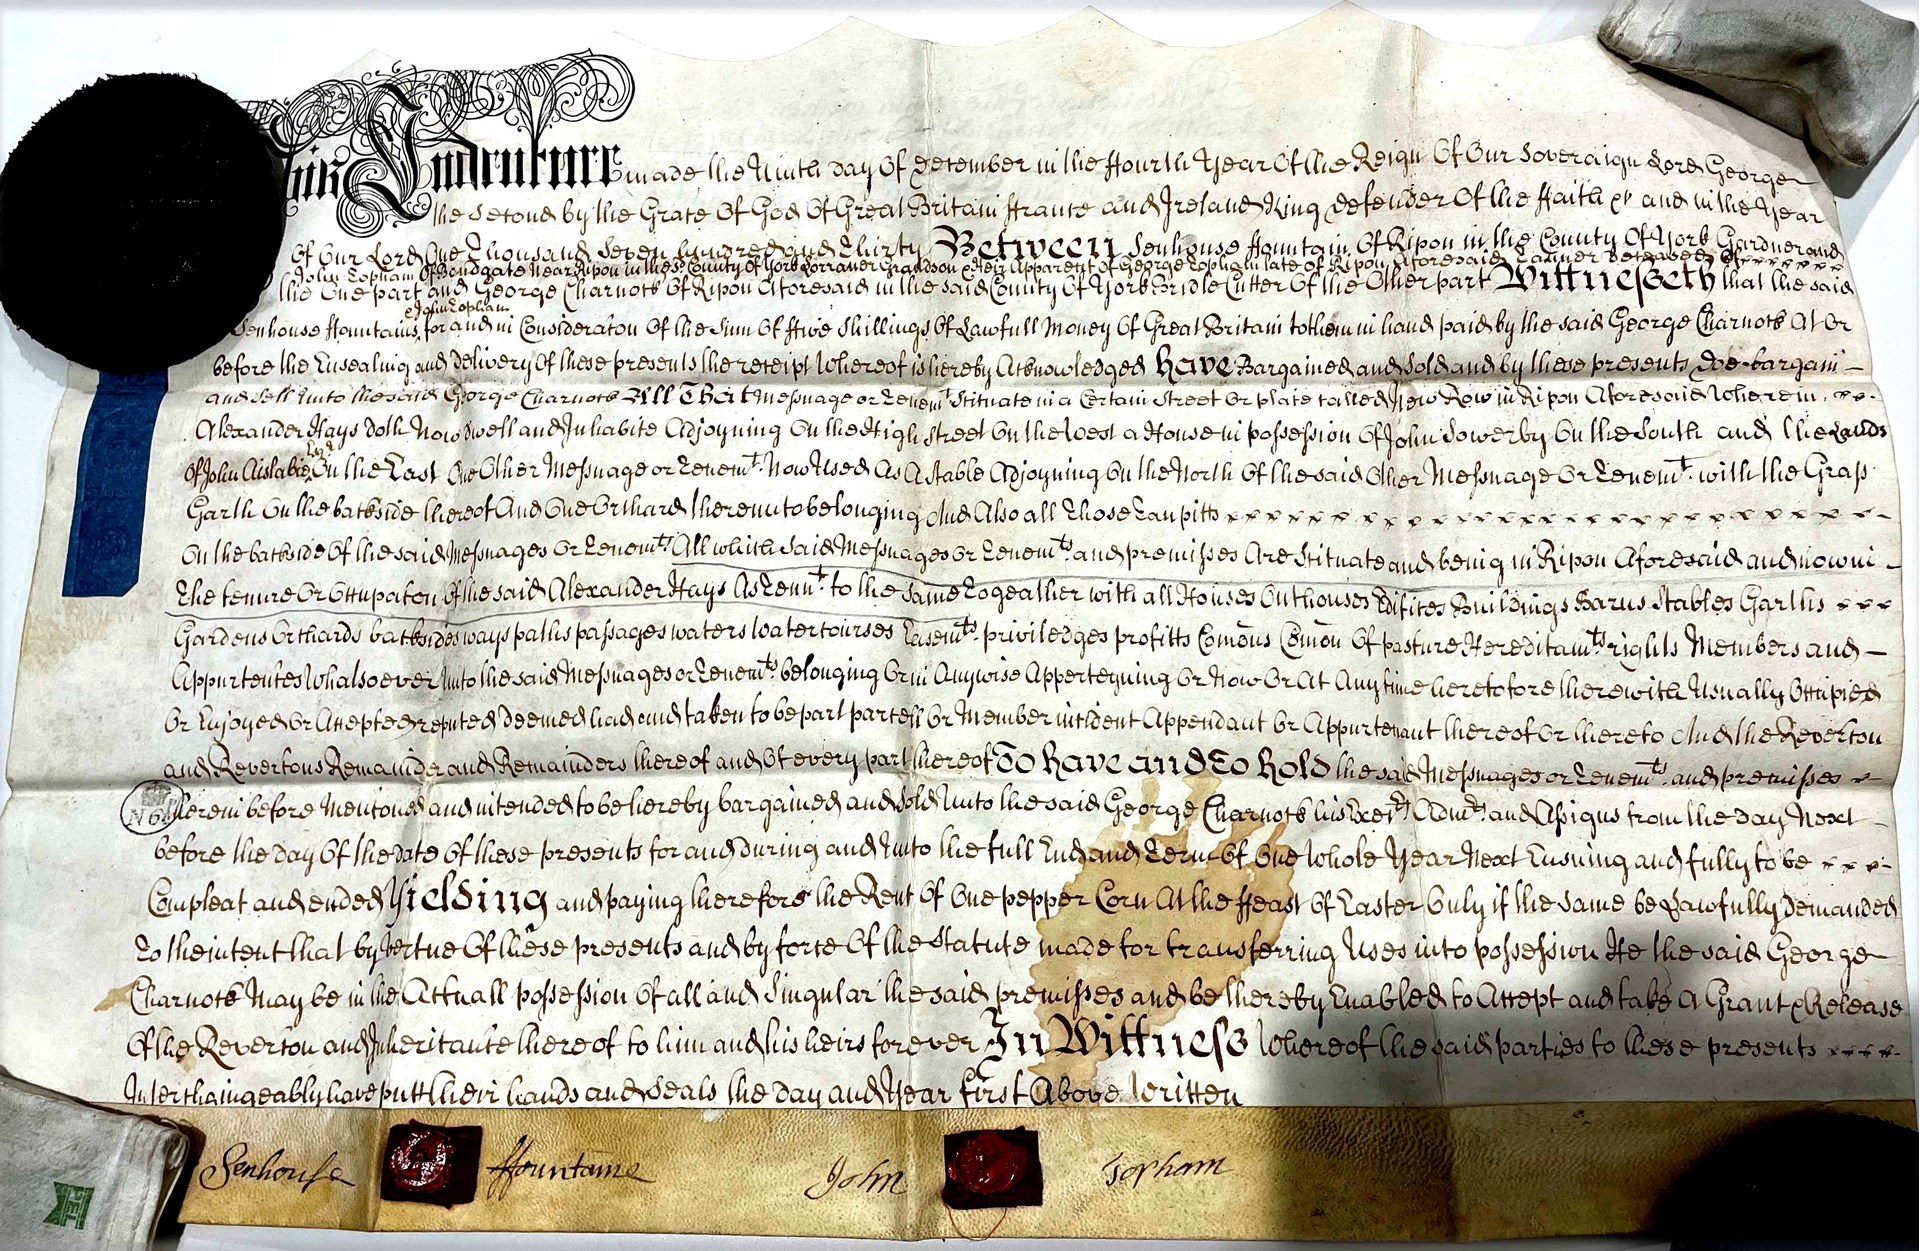 This Indenture made the Ninth day Of December in the ffourth Year Of the Reign Of Our Soveraign Lord George
the Second by the Grace Of God Of Great Britain ffrance and Ireland King Defender Of the ffaith &c and in the Year
Of Our Lord One Thousand Seven hundred and Thirty Between Senhouse ffountain Of Ripon in the County Of York Gardner and
John Topham Of Bondgate Near Ripon in the sd County Of York Grandson & Heir Apparent of George Topham late of Ripon Aforesaid Tanner deceased Of
the One part and George Charnock Of Ripon Aforesaid in the said County Of York Bridle Cutter Of the Other part Wittnesseth that the said
& John Topham
Senhouse ffountain, for and in Consideracon Of the Sum Of ffive Shillings Of Lawfull Money Of Great Britain to them in hand paid by the said George Charnock At Or
before the Ensealing and delivery Of these presents the receipt Whereof is hereby Acknowledged Have Bargained and Sold and by these presents Doe bargain
and Sell Unto the said George Charnock All That Messuage or Tenemt. Scituate in a Certain Street Or place called New Row in Ripon Aforesaid Wherein
Alexander Hays doth Now dwell and Inhabite Adjoyning On the High Street On the West a House in possession Of John Sowerby On the South and the Lands
Esqr
Of John Aislabie On the East One Other Messuage or Tenemt. Now Used As A Stable Adjoyning On the North Of the said Other Messuage Or Tenemt. with the Grass
Garth On the backside thereof And One Orchard thereunto belonging And Also all Those Tan pitts
On the backside Of the said Messuages Or Tenemts. All which Said Messuages or Tenemts. and premisses Are Scituate and being in Ripon Aforesaid and now in
The tenure Or Occupacon Of the said Alexander Hays As Tennt. to the Same Togeather with all Houses Outhouses Edifices Buildings Barns Stables Garths
Gardens Orchards backsides ways paths passages waters Watercourses Easemts. priviledges profitts Comons Comon Of pasture Hereditamts. rights Members and
Appurtences Whatsoever Unto the said Messuages or Tenemts. belonging Or in Anywise Apperteyning Or Now Or At Any time heretofore therewith Usually Occupied
Or Enjoyed Or Accepted reputed deemed had and taken to be part parcell Or Member incident Appendant Or Appurtenant thereof Or thereto And the Revercon
and Revercons Remainder and Remainders thereof and Of every part thereof To Have and To Hold the said Messuages or Tenemts. and premisses
N 6
herein before Mentioned and intended to be hereby bargained and Sold Unto the said George Charnock his Exers Admrs and Assigns from the day Next
before the day Of the date Of these presents for and during and Unto the full End and Term Of One Whole Year Next Ensuing and fully to be
Compleat and ended Yielding and paying therefore the Rent Of One pepper Corn At the ffeast Of Easter Only if the Same be Lawfully Demanded
To the intent that by Vertue Of these presents and by force Of the Statute made for transferring Uses into possession He the said George
Charnock May be in the Actuall possession Of all and Singular the said premisses and be thereby Enabled to Accept and take A Grant & Release
Of the Revercon and Inheritance thereof to him and his heirs forever In Wittness Whereof the said parties to these presents
Interchaingeably have putt their hands and Seals the day and Year first Above Written
Senhouse ffountaine John Topham